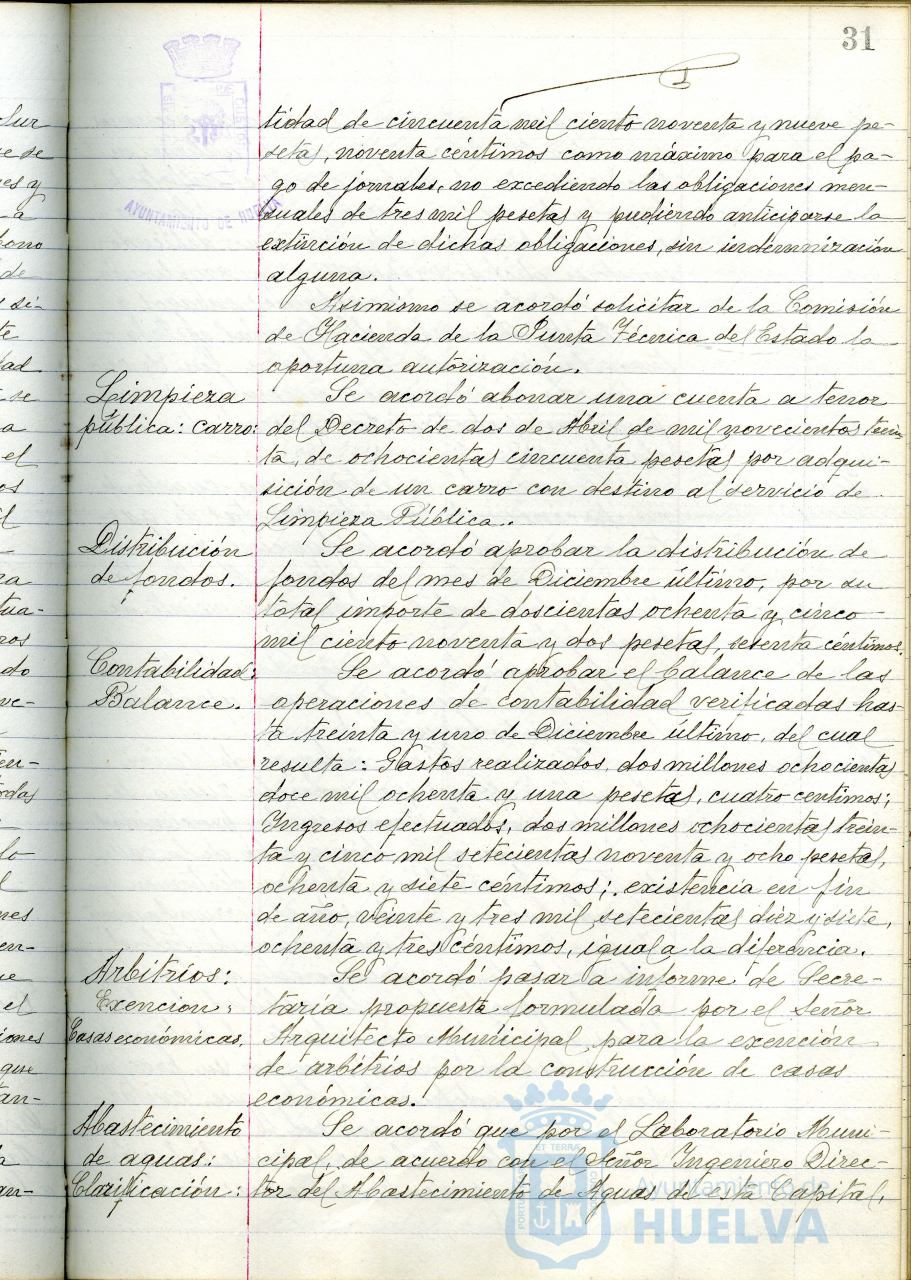 31
AYUNTAMIENTO DE HUELVA
tidad de cincuenta mil ciento noventa y nueve pe-
setas, noventa céntimos como máximo para el pa-
go de jornales, no excediendo las obligaciones men-
suales de tres mil pesetas y pudiendo anticiparse la
extinción de dichas obligaciones, sin indemnización
alguna.
Asimismo se acordó solicitar de la Comisión
de Hacienda de la Junta Técnica del Estado la
oportuna autorización.
Limpieza
pública: carro:
Se acordó abonar una cuenta a tenor
del Decreto de dos de Abril de mil novecientos trein
ta, de ochocientas cincuenta pesetas por adqui-
sición de un carro con destino al servicio de
Limpieza Pública.
Distribución
de fondos.
Se acordó aprobar la distribución de
fondos del mes de Diciembre último, por su
total importe de doscientas ochenta y cinco
mil ciento noventa y dos pesetas, sesenta céntimos.
Contabilidad:
Balance.
Se acordó aprobar el balance de las
operaciones de contabilidad verificadas has-
ta treinta y uno de Diciembre último, del cual
resulta: Gastos realizados, dos millones ochocientas
doce mil ochenta y una pesetas, cuatro centimos;
Ingresos efectuados, dos millones ochocientas trein-
ta y cinco mil setecientas noventa y ocho pesetas,
ochenta y siete céntimos; existencia en fin
de año, veinte y tres mil setecientas diez y siete,
ochenta y tres céntimos, igual a la diferencia.
Arbitrios:
Exencion:
Casas económicas.
Se acordó pasar a informe de Secre-
taría propuesta formulada por el Señor
Arquitecto Municipal para la exención
de arbitrios por la construcción de casas
económicas.
Abastecimiento
de aguas:
Clarificación:
Se acordó que por el Laboratorio Muni-
cipal, de acuerdo con el Señor Ingeniero Direc-
tor del Abastecimiento de Aguas de esta Capital,
Ayuntamiento de
HUELVA